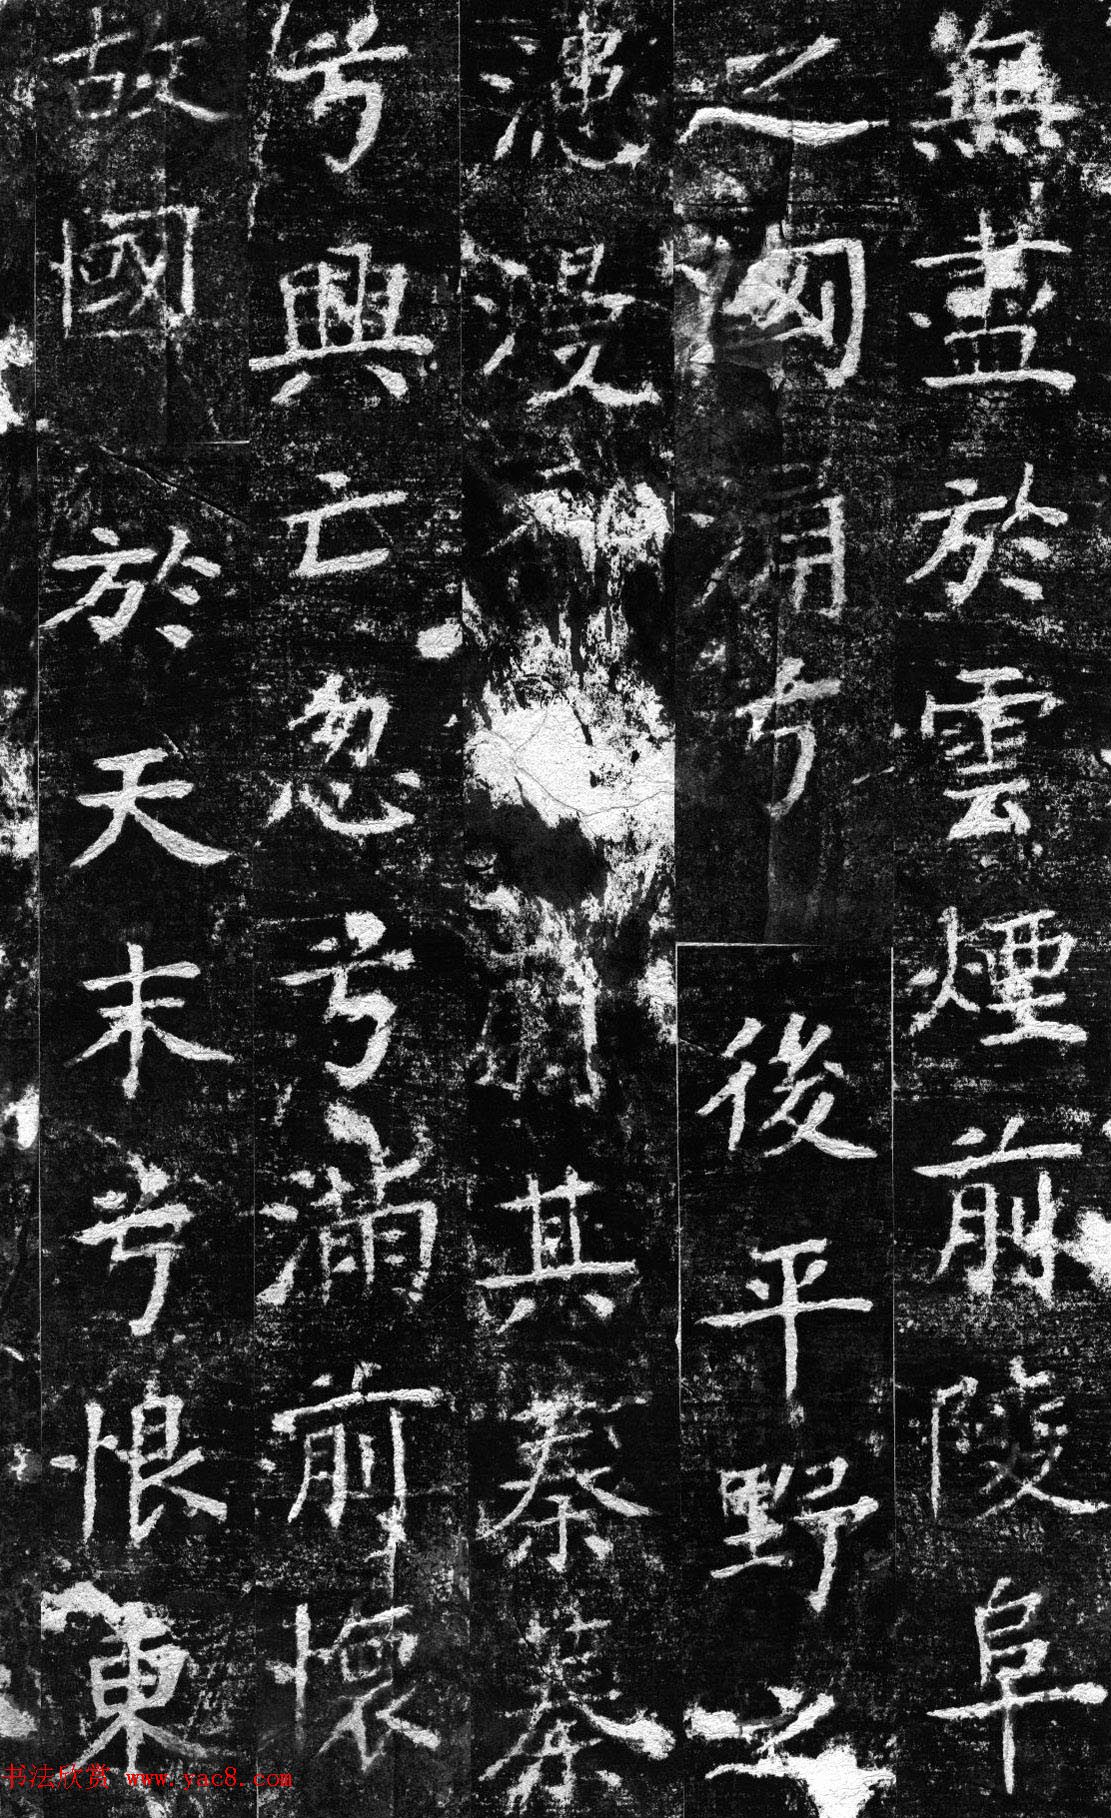 無盡於雲煙前陵阜
之匈涌兮後平野之
漶漫其秦
兮興亡忽兮滿前懷
故國於天末兮恨東
书法欣赏 www.yac8.com